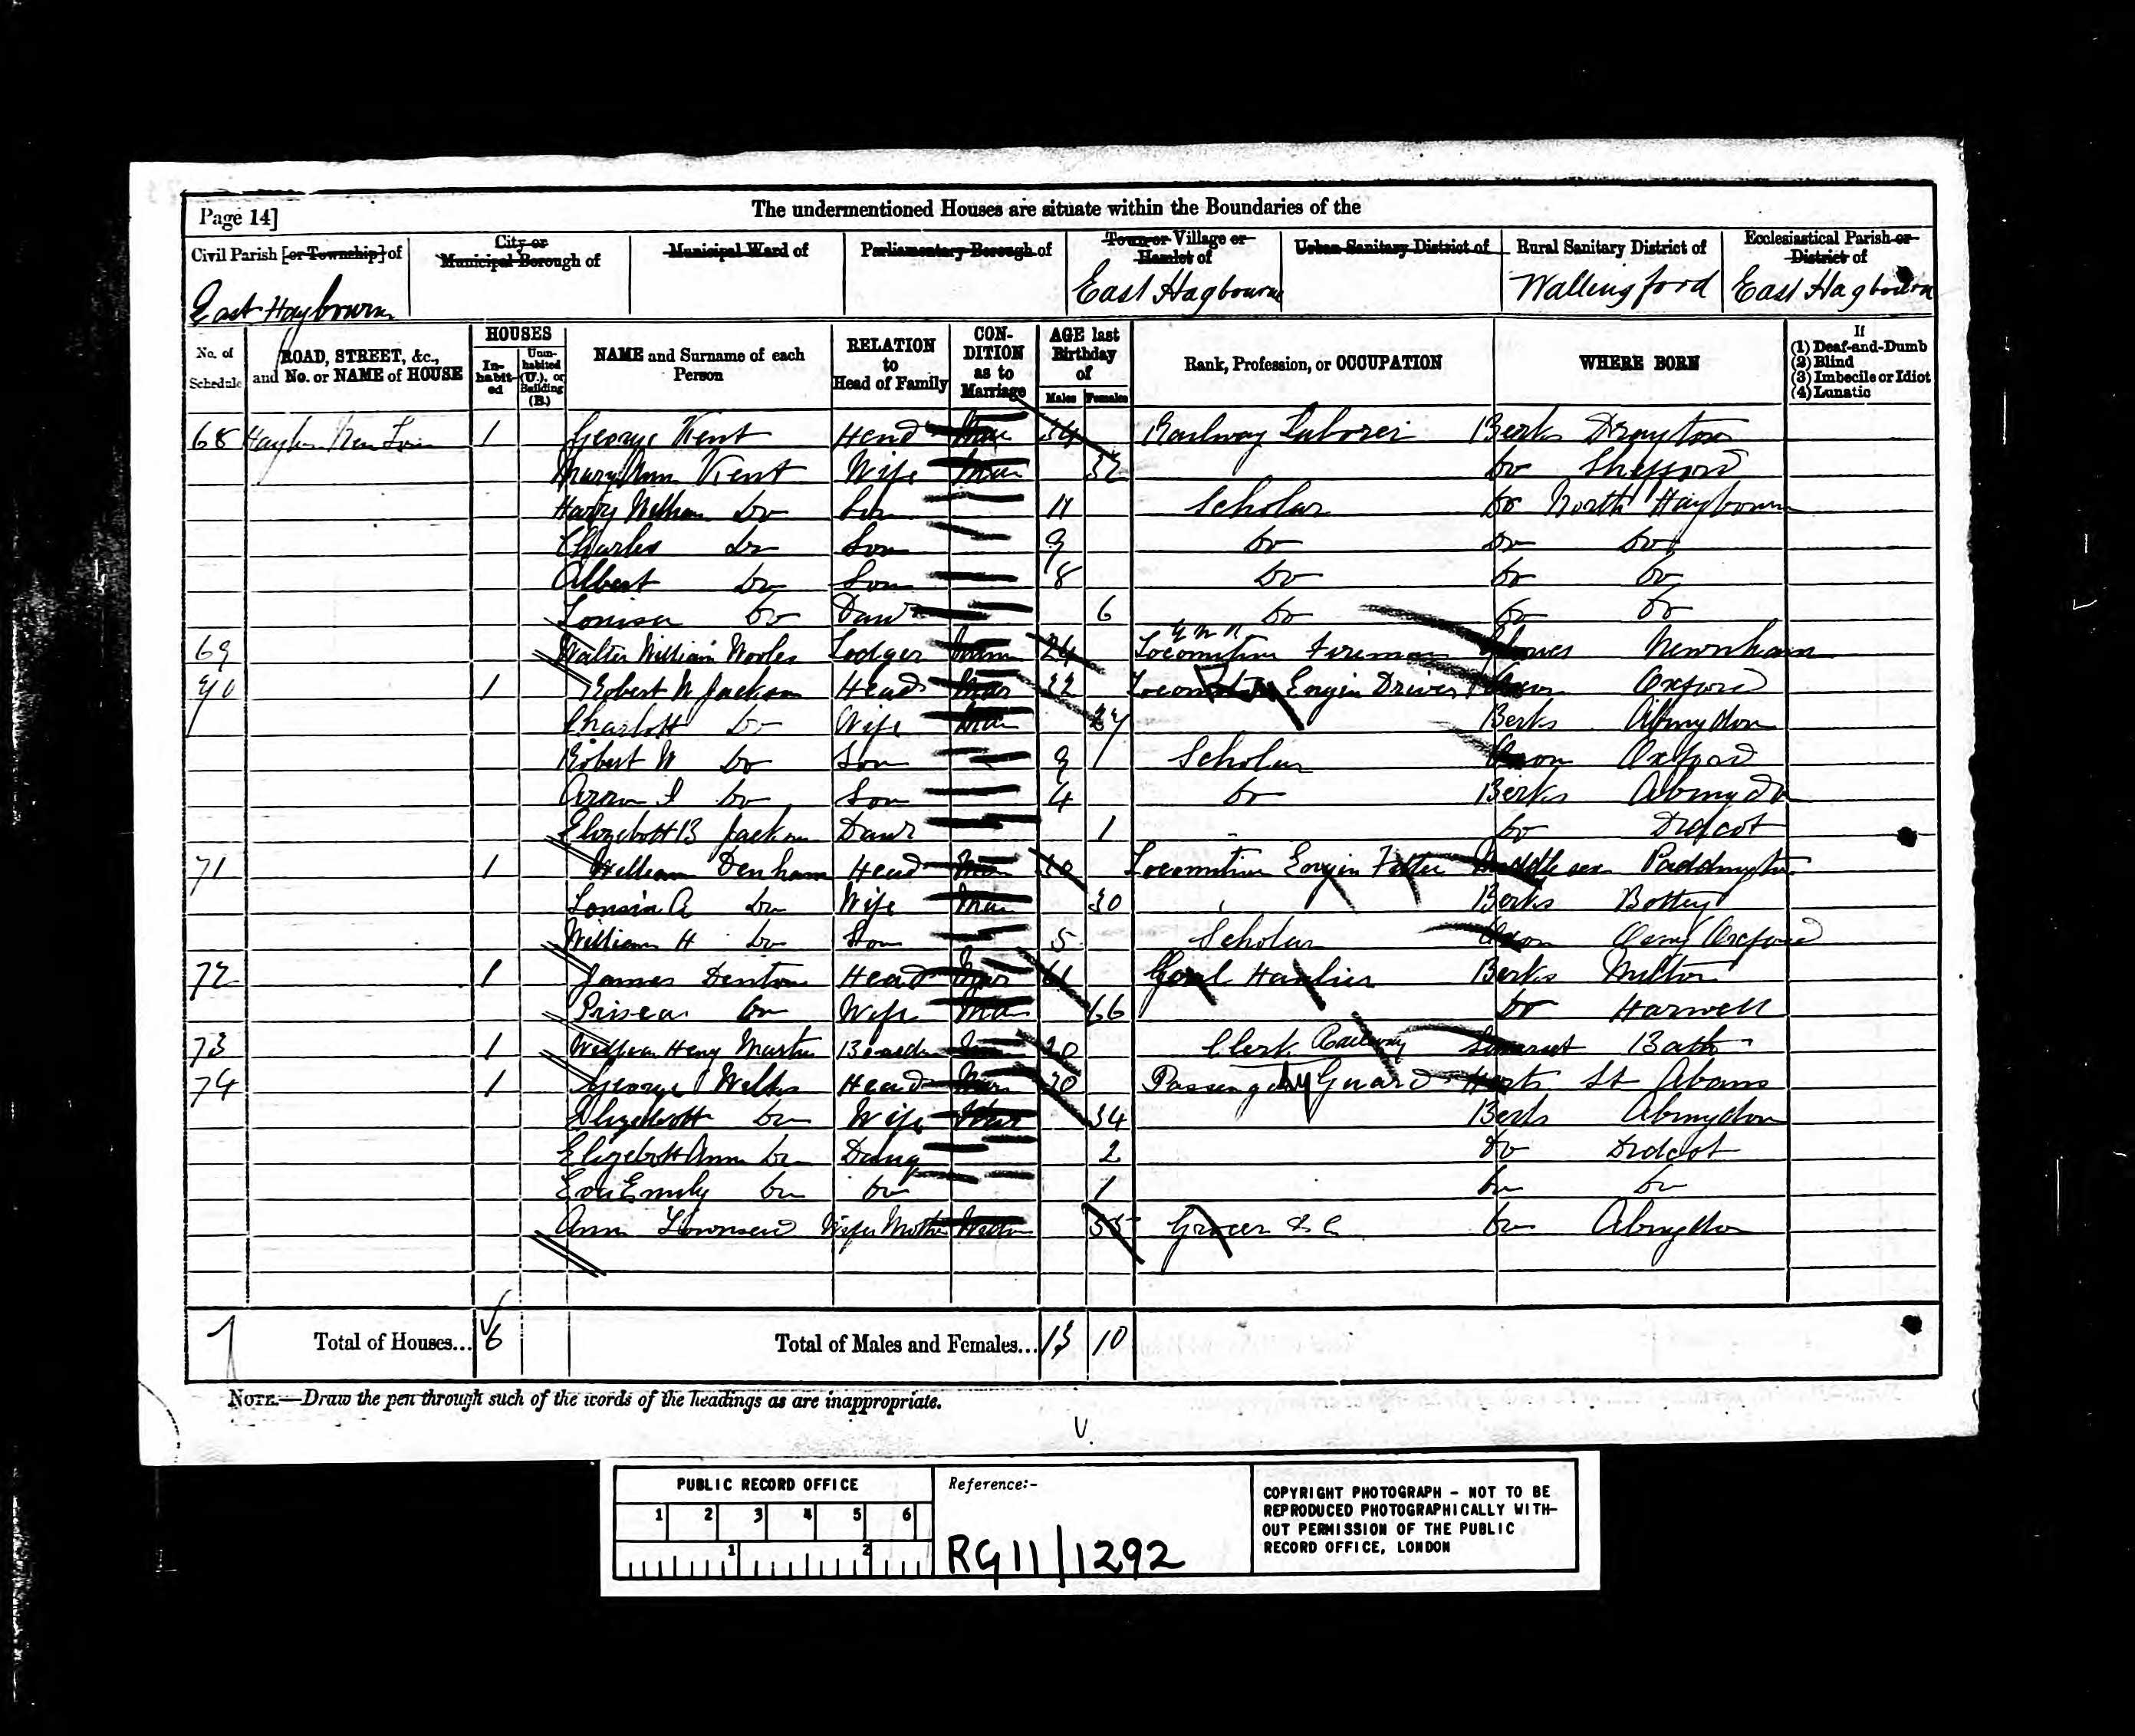 Page 14]
The undermentioned Houses are situate within the Boundaries of the
Civil Parish [or Township] of
City or Municipal Borough of
Municipal Ward of
Parliamentary Borough of
Town or Village or Hamlet of
Urban Sanitary District of
Rural Sanitary District of
Ecclesiastical Parish or District of
East Hagbourne
East Hagbourne
Wallingford
East Hagbourne
No. of Schedule
ROAD, STREET, &c., and No. or NAME of HOUSE
HOUSES
In-habit-ed
Unin-habited (U.), or Building (B.)
NAME and Surname of each Person
RELATION to Head of Family
CON-DITION as to Marriage
AGE last Birthday of
Males Females
Rank, Profession, or OCCUPATION
WHERE BORN
If
(1) Deaf-and-Dumb
(2) Blind
(3) Imbecile or Idiot
(4) Lunatic
68 1 George Kent Head Mar 34 Railway Laborer Berks Drayton
Mary Ann Kent Wife Mar 32 Do Shefford
Harry William Do Son 11 Scholar Do North Hagbourne
Charles Do Son 9 Do Do Do
Albert Do Son 8 Do Do Do
Louisa Do Daur 6 Do Do Do
69 Walter William Lodger 24 Locomotive Fireman Newnham
70 1 Robert W Jackson Head Mar 32 Locomotive Engin Driver Oxon Oxford
Charlott Do Wife Mar 27 Berks Abingdon
Robert W Do Son 9 Scholar Oxon Oxford
Do Son 4 Do Berks Abingdon
Elizebott B Jackson Daur 1 Do Didcot
71 1 William Denham Head Mar 30 Locomotive Engin Fitter Middlesex Paddington
Louisa A Do Wife Mar 30 Berks Botley
William H Do Son 5 Scholar Oxon Oxford
72 1 James Denton Head Mar 61 Berks Milton
Do Wife Mar 66 Do Harwell
73 1 William Henry Boarder 20 Clerk Railway Somerset Bath
74 1 George Head Mar 30 Passenger Guard Herts St Abans
Elizebott Do Wife Mar 34 Berks Abingdon
Elizebott Ann Do Daug 2 Do Didcot
Eva Emily Do Do 1 Do Do
Ann Townsend Wifes Mother Widow 55 Grocer &c Do Abingdon
Total of Houses... 6
Total of Males and Females... 13 10
NOTE.—Draw the pen through such of the words of the headings as are inappropriate.
PUBLIC RECORD OFFICE
1 2 3 4 5 6
1 2
Reference:-
RG 11/1292
COPYRIGHT PHOTOGRAPH - NOT TO BE
REPRODUCED PHOTOGRAPHICALLY WITH-
OUT PERMISSION OF THE PUBLIC
RECORD OFFICE, LONDON